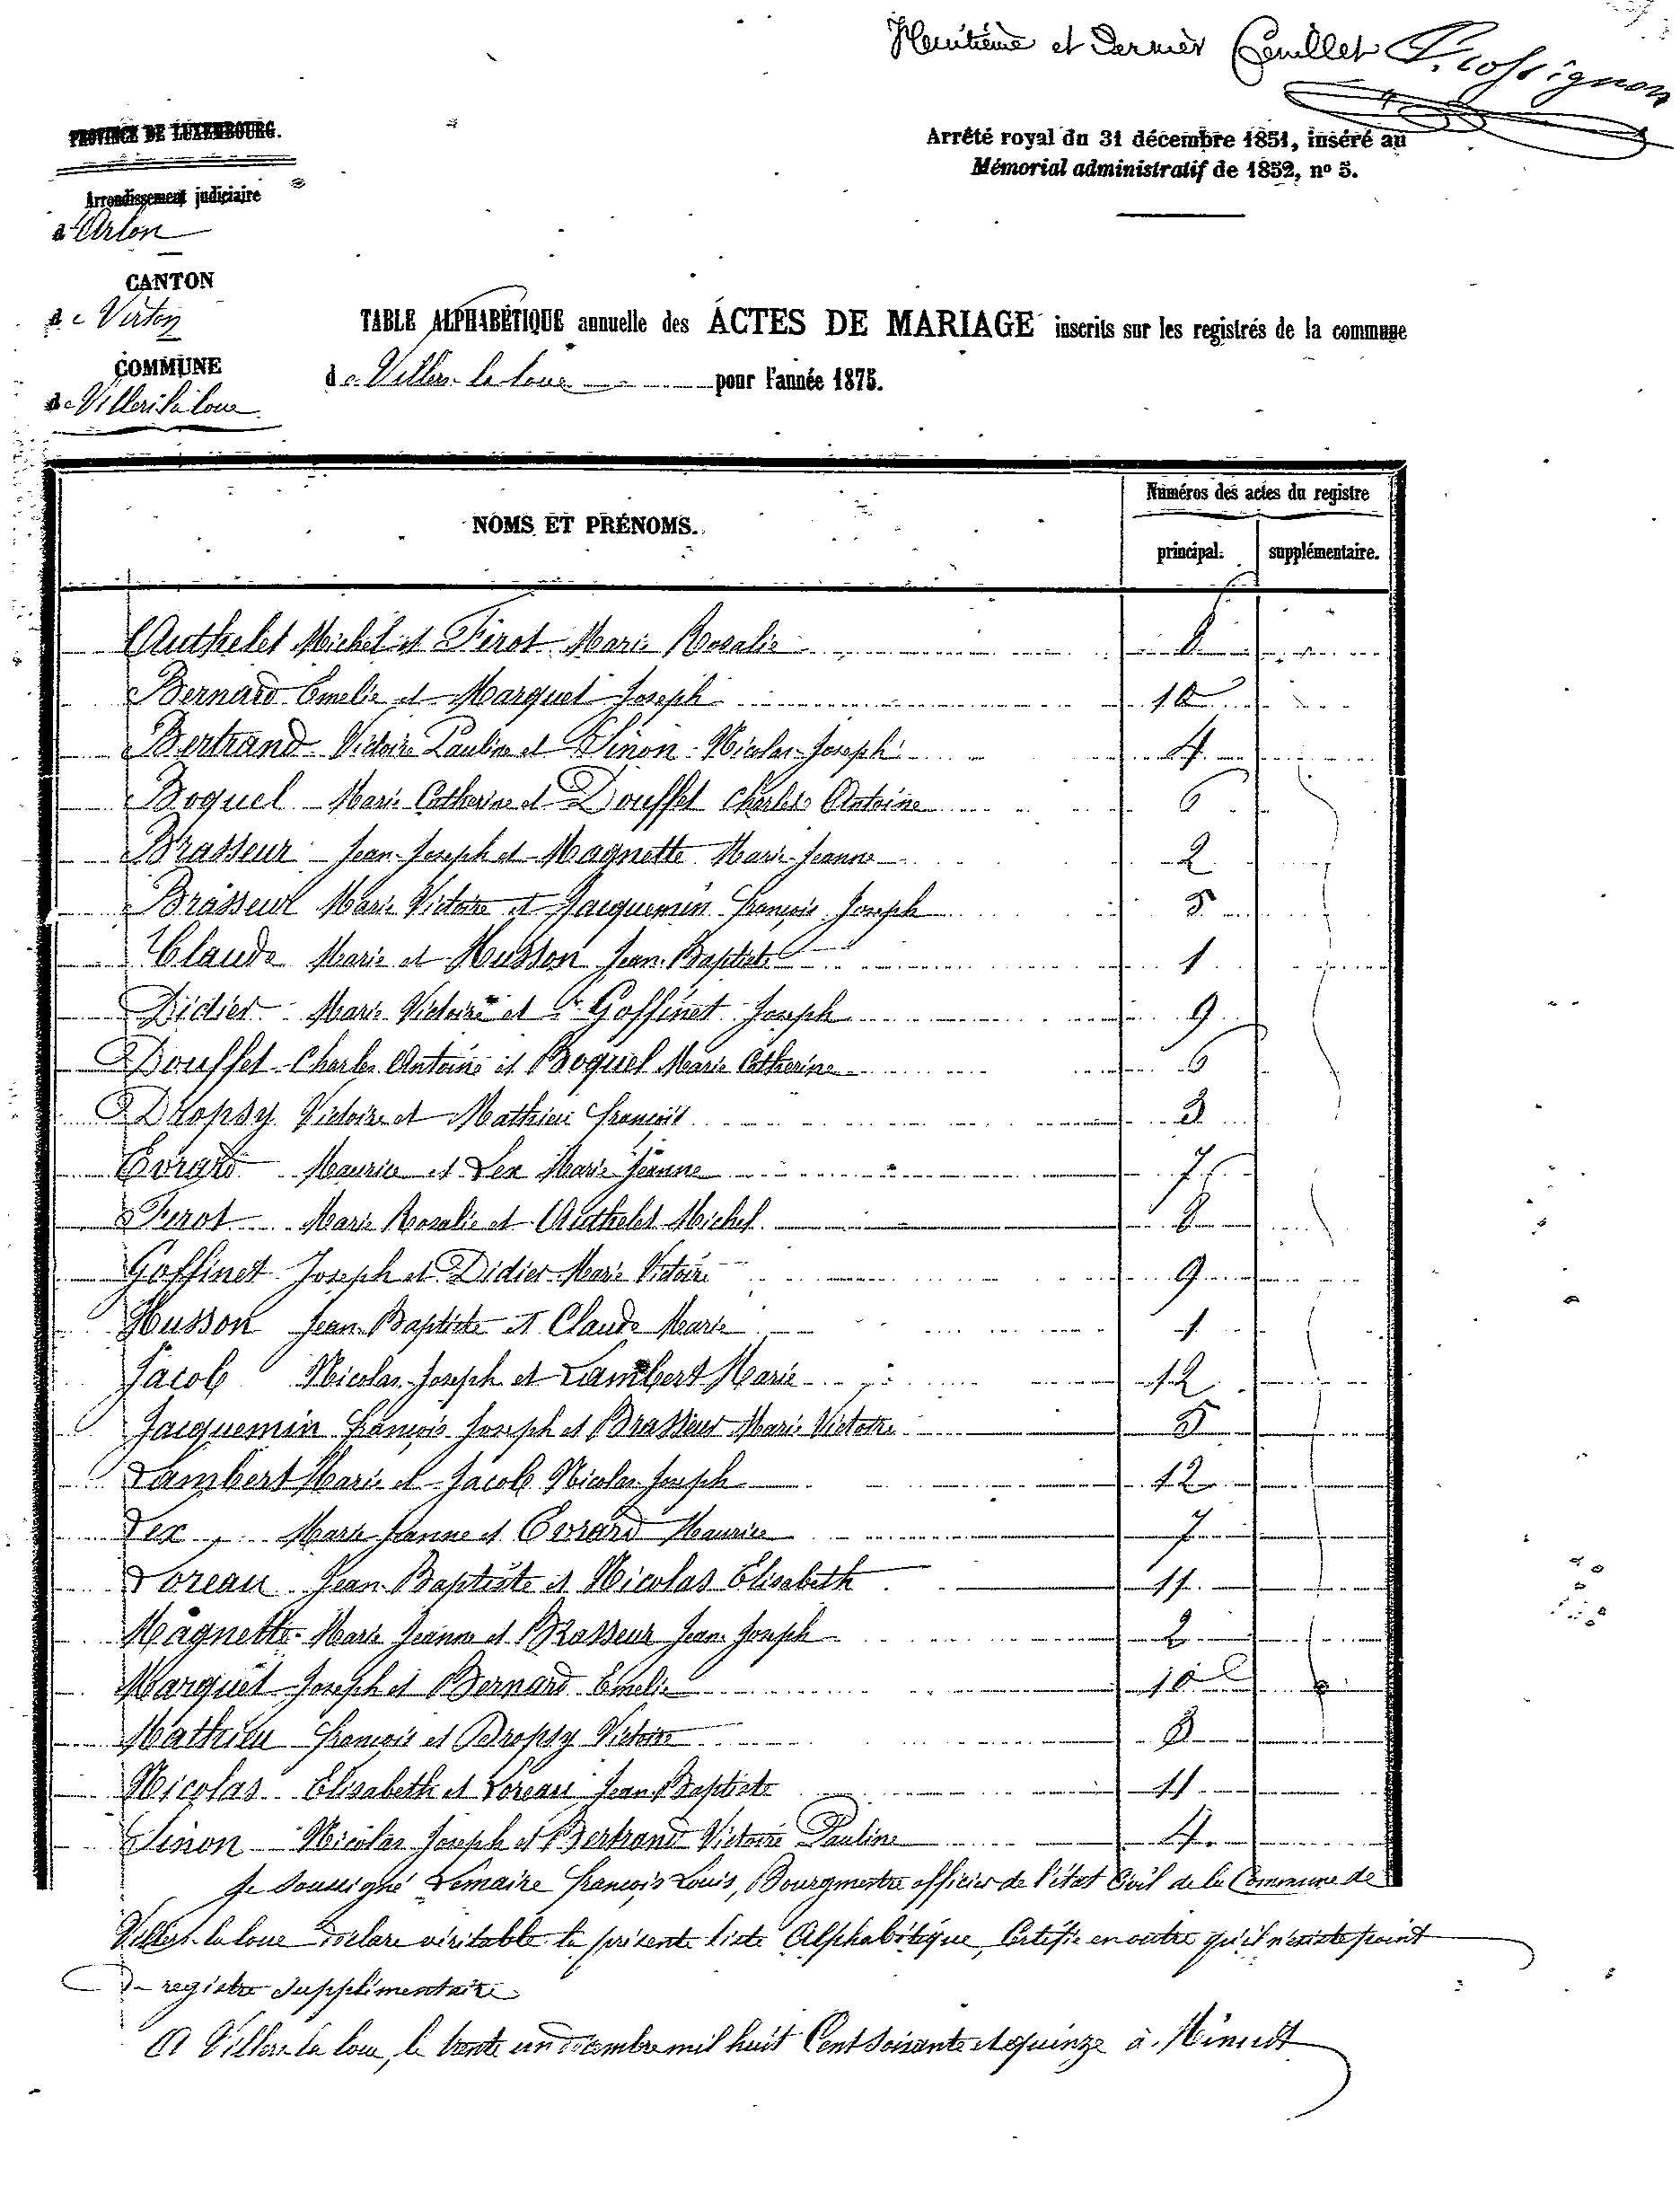 Huitième et dernier feuillet
PROVINCE DE LUXEMBOURG.
Arrêté royal du 31 décembre 1851, inséré au
Mémorial administratif de 1852, nº 5.
Arrondissement judiciaire
d'Arlon
CANTON
de Virton
COMMUNE
de Villers la loue
TABLE ALPHABÉTIQUE annuelle des ACTES DE MARIAGE inscrits sur les registrés de la commune
de Villers-la-loue pour l'année 1875.
NOMS ET PRÉNOMS. Numéros des actes du registre
principal. supplémentaire.
Authelet Michel et Firot Marie Rosalie 8
Bernard Emelie et Marquet Joseph 10
Bertrand Victoire Pauline et Sinon Nicolas Joseph 4
Boquel Marie Catherine et Douffet Charles Antoine 6
Brasseur Jean-Joseph et Magnette Marie-Jeanne 2
Brasseur Marie Victoire et Jacquemin François Joseph 5
Claude Marie et Husson Jean-Baptiste 1
Didier Marie Victoire et Goffinet Joseph 9
Douffet Charles Antoine et Boquel Marie Catherine 6
Dropsy Victoire et Mathieu François 3
Evrard Maurice et Lex Marie Jeanne 7
Firot Marie Rosalie et Authelet Michel 8
Goffinet Joseph et Didier Marie Victoire 9
Husson Jean-Baptiste et Claude Marie 1
Jacob Nicolas-Joseph et Lambert Marie 12
Jacquemin François Joseph et Brasseur Marie Victoire 5
Lambert Marie et Jacob Nicolas Joseph 12
Lex Marie Jeanne et Evrard Maurice 7
Loreau Jean-Baptiste et Nicolas Elisabeth 11
Magnette Marie Jeanne et Brasseur Jean Joseph 2
Marquet Joseph et Bernard Emelie 10
Mathieu François et Dropsy Victoire 3
Nicolas Elisabeth et Loreau Jean-Baptiste 11
Sinon Nicolas Joseph et Bertrand Victoire Pauline 4
Je soussigné Lemaire François Louis, Bourgmestre officier de l'état Civil de la Commune de
Villers-la loue Déclare véritable la présente liste Alphabétique, Certifie en outre qu'il n'existe point
de registre supplémentaire
A Villers-la loue, le trente un décembre mil huit Cent soixante et quinze à Minuit